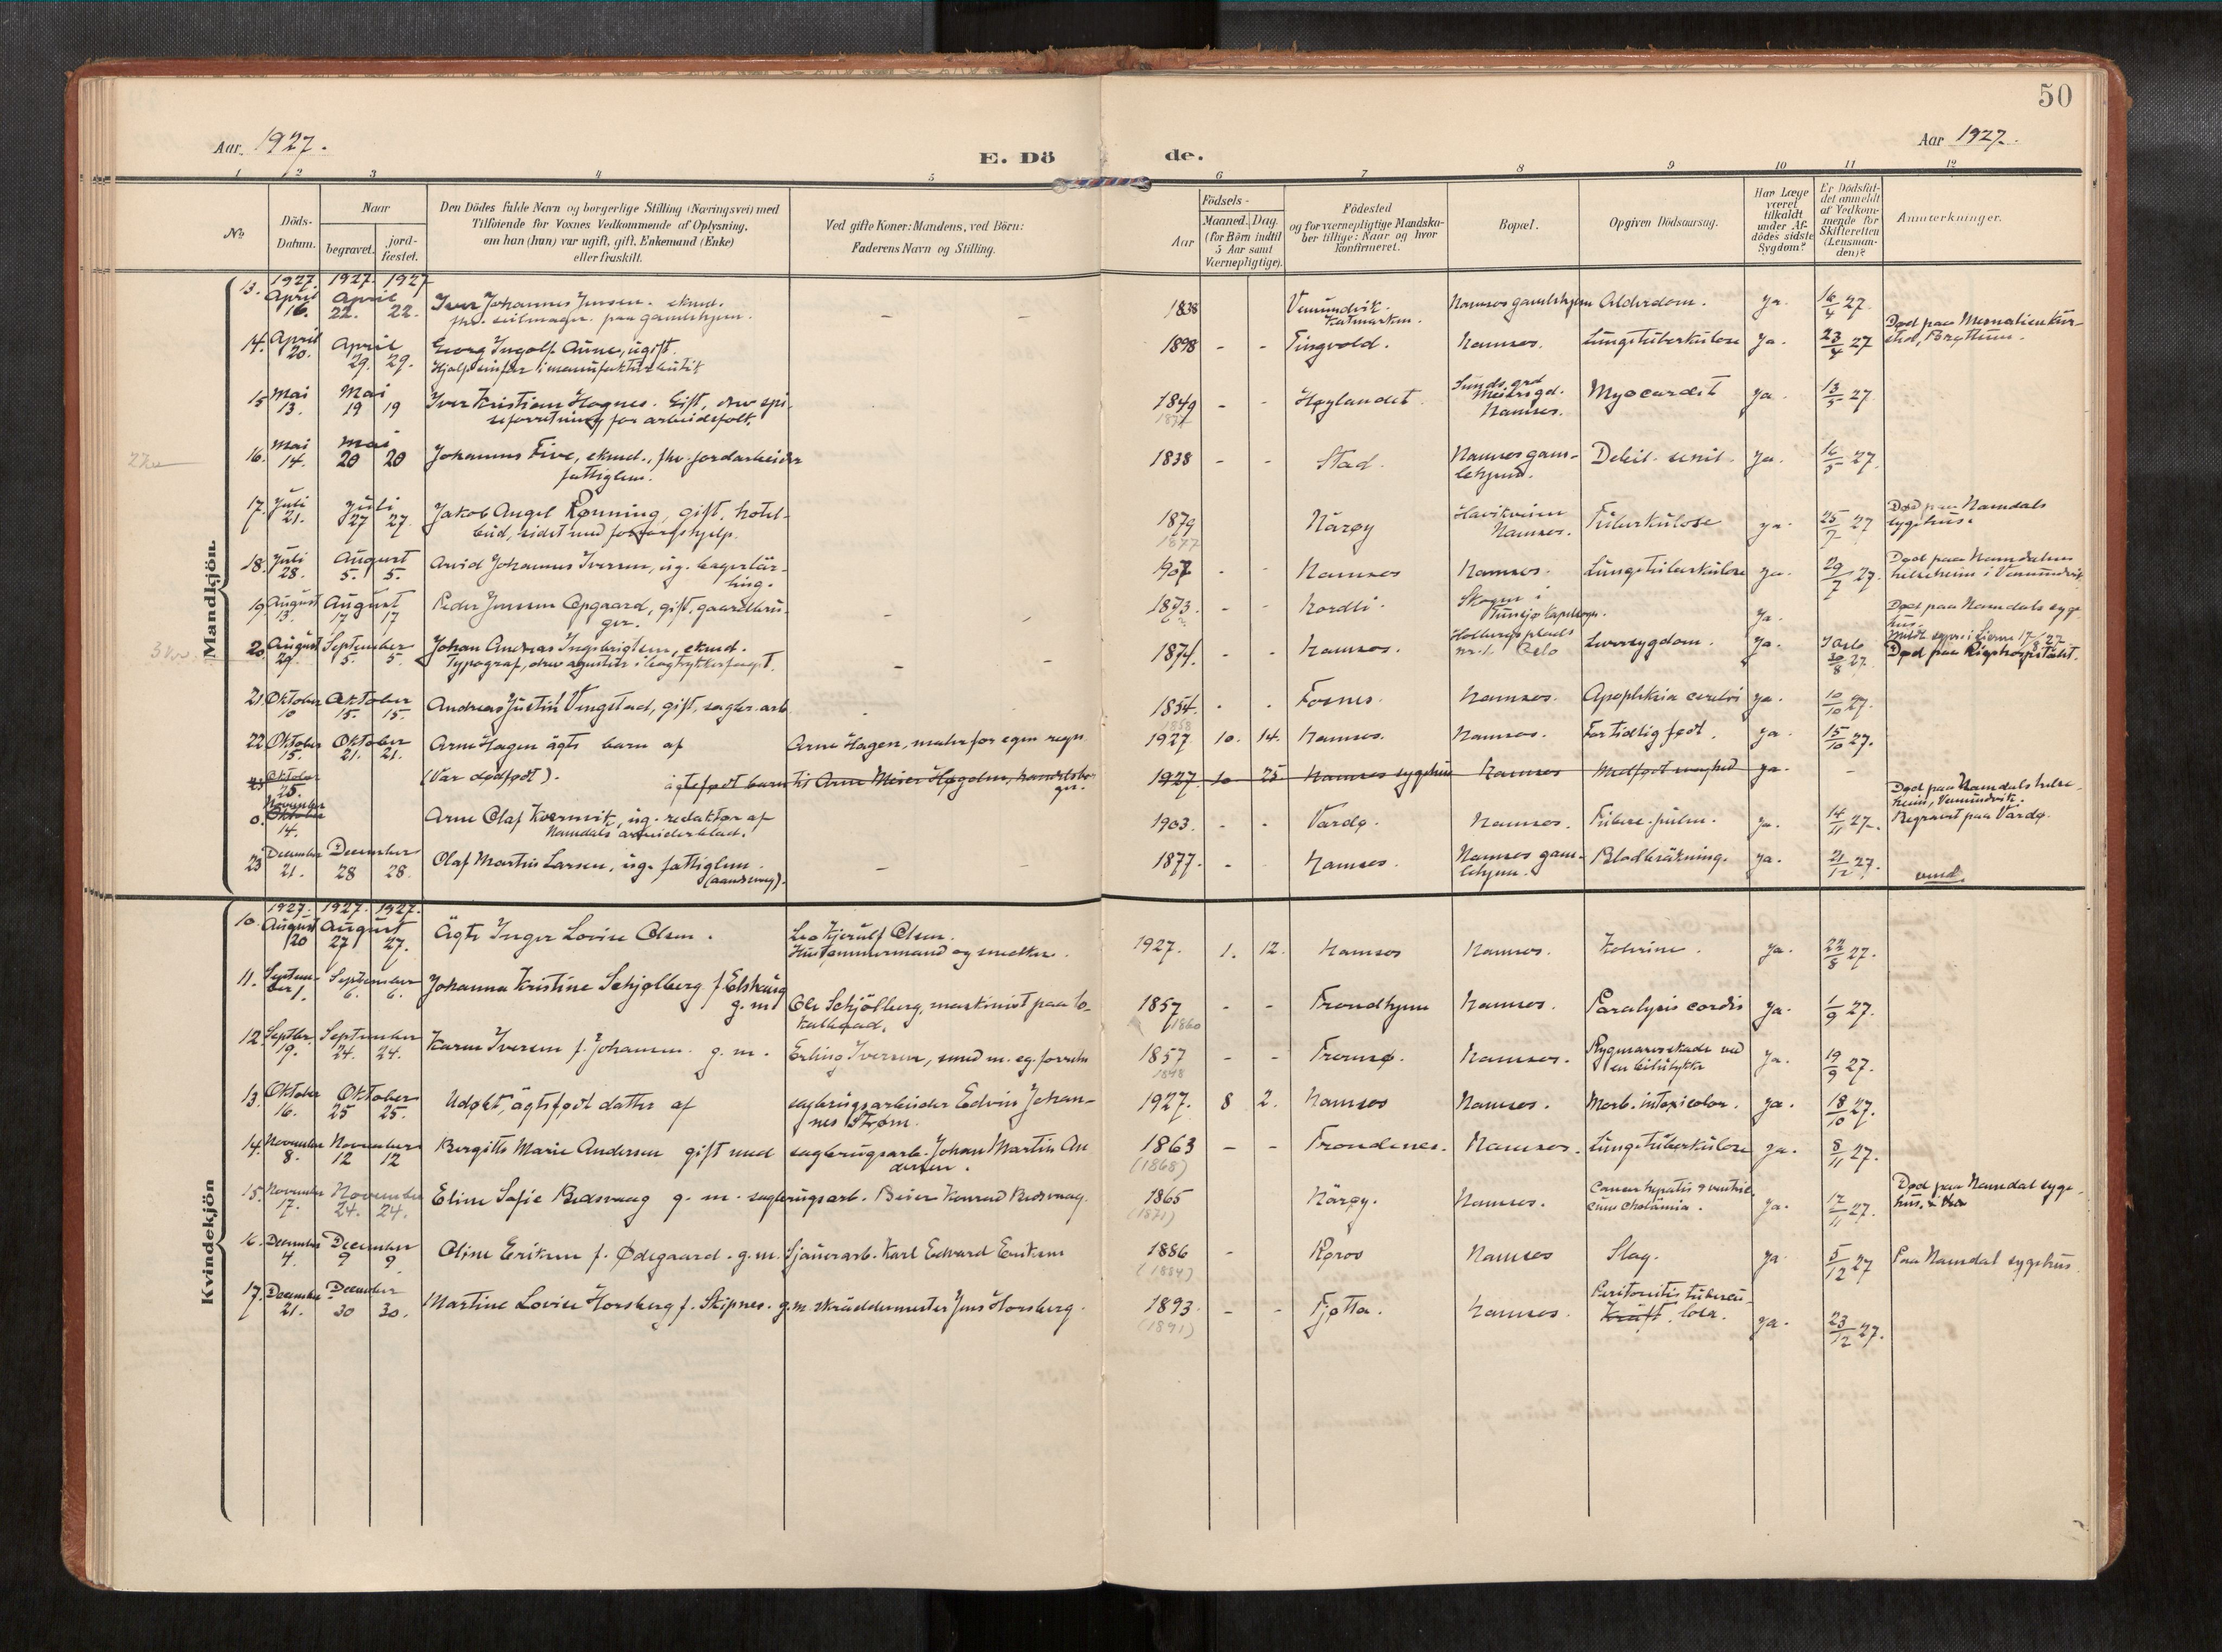 50
Aar 1927.
E. Dö
de.
Aar 1927.
1 2 3 4 5 6 7 8 9 10 11 12
No
Döds-
Datum.
Naar
begravet.
jord-
fæstet.
Den Dödes fulde Navn og borgerlige Stilling (Næringsvei) med
Tilföiende for Voxnes Vedkommende af Oplysning,
om han (hun) var ugift, gift, Enkemand (Enke)
eller fraskilt.
Ved gifte Koner: Mandens, ved Börn:
Faderens Navn og Stilling.
Födsels-
Aar
Maaned. Dag.
(for Börn indtil
5 Aar samt
Værnepligtige).
Födested
og for værnepligtige Mandska-
ber tillige: Naar og hvor
konfirmeret.
Bopæl.
Opgiven Dödsaarsag.
Har Læge
været
tilkaldt
under Af-
dödes sidste
Sygdom?
Er Dödsfal-
det anmeldt
af Vedkom-
mende for
Skifteretten
(Lensman-
den)?
Anmærkninger.
Mandkjön.
1927. 1927. 1927
13. April 16. April 22. 22. Iver Johannes Jensen. ekmd. – – 1838 Vemundvik. Namsos gamlehjem Alderdom. Ja. 16/4 27.
fhv. seilmager. paa gamlehjem. Katmarken.
14. April 20. April 29. 29. Georg Ingolf Aune, ugift. 1898 - - Tingvold. Namsos. Lungetuberkulose Ja. 23/4 27 Død paa Mesnalien kur-
i manufakturbutik
15 Mai 13. Mai 19 19 Iver Kristian Høgnes. Gift, drev spi-
seforretning for arbeidsfolk. 1849 - - Høylandet. Namsos. Myocardit Ja. 13/5 27.
16. Mai 14. Mai 20 20 Johannes Five, ekmd., fhv. jordarbeider 1838 - - Stad. Namsos gam-
lehjem. Debil. senil. Ja. 16/5 27.
fattiglem.
17. Juli 21. Juli 27 27. Jakob Angel Rønning, gift, hotel-
bud, sidst med forsorgshjelp. 1879 - - Närøy Havikveien
Namsos. Tuberkulose ja. 25/7 27 Død paa Namdals
1877 sygehus.
18. Juli 28. August 5. 5. Arvid Johannes Iversen, ug. bagerlär-
ling. 907 - - Namsos Namsos. Lungetuberkulose ja. 29/7 27. Død paa Namdalens
helseheim i Vemundvik
19. August 13. August 17 17 Peder Jensen Opgaard, gift, gaardbru-
ger. 1873. - - Nordli. Skogen i
Tunsjø Kapelsogn. Ja. Død paa Namdals syge
hus.
20. August 29. September 5. 5. Johan Andreas Ingebrigtsen, ekmd. 1874. - - Namsos. Holbergs plads
nr. 1. Oslo Leversygdom. Ja. I Oslo
30/8 27. Død paa Rigshospitalet.
21. Oktober 10 Oktober 15. 15. Andreas Justin Vengstad, gift, sagbr. arb. 1854. Fosnes. Namsos. Apoplexia cerebri ja. 10/10 27.
1858
22. Oktober 15. Oktober 21. 21. Arne Hagen ägte barn af Arne Hagen, maler for egen regn 1927 10. 14. Namsos. Namsos. For tidlig født. ja 15/10 27.
23 Oktober 25. (Var dødfødt). ägtefødt barn til Arne Meier Høgolm, handelsbo- 1927. 10 25 Namsos sygehus Namsos Medfødt svaghed ja. -
0. November 14. Arne Olaf Kvernvik, ug. redaktør af 1903. - - Vardø. Namsos. Tuberc. pulm. Ja. 14/11 27. Død paa Namdals helse-
heim, Vemundvik.
Namdals arbeiderblad. Begravet paa Vardø.
23 December 21. December 28 28. Olaf Martin Larsen, ug. fattiglem. 1877. - - Namsos. Namsos gam-
lehjem. Blodbräkning. Ja. 21/12 27.
(aandssvag).
Kvindekjön
1927. 1927. 1927.
10. August 20 August 27 27. Ägte Inger Lovise Olsen. Leo Kjerulf Olsen.
Hustømmermand og snekker. 1927. 1. 12. Namsos Namsos. Kolerine. Ja. 22/8 27.
11. Septem-
ber 1. September 6. 6. Johanna Kristine Schjølberg f. Elshaug
g. m. Ole Schjølberg, maskinist paa lo-
kalbaad. 1857 - - Trondhjem Namsos. Paralysis cordis Ja. 1/9 27.
1860
12. Septbr. 19. September 24. 24. Karen Iversen f. Johansen. g. m. Erling Iversen, smed m. eg. forretn 1857 - - Tromsø. Namsos. Rygmarvsskade ved
en bilulykke Ja. 19/9 27.
1848
13. Oktober 16. Oktober 25 25. Udøbt, ägtefødt datter af sagbrugsarbeider Edvin Johan-
nes Strøm. 1927. 8 2. Namsos Namsos. Morb. intoxicolor. Ja. 18/10 27.
14. November 8. November 12 12 Bergitte Marie Andersen gift med sagbrugsarb. Johan Martin An
dersen. 1863 - - Trondenes. Namsos. Lungetuberkulose Ja. 8/11 27.
(1868)
15. November 17. November 24. 24. Eline Sofie Rødsvaag g. m. sagbrugsarb. Beier Konrad Rødsvaag. 1865 Närøy. Namsos. Cancer hepatis & ventric.
cum cholämia. Ja. 17/11 27. Død paa Namdal syge-
hus.
(1871)
16. December 4. December 9 9 Oline Eriksen f. Ødegaard. g. m. sjauerarb. Karl Edvard Eriksen 1886 - Røros Namsos Slag. Ja 5/12 27 Paa Namdal sygehus
(1884)
17. December 21. December 30 30. Martine Lovise Horsberg f. Skipnes. g. m. skräddermester Jens Horsberg. 1893. - - Tjøtta. Namsos. Peritonitis tubercu-
Kräft. losa. Ja. 23/12 27.
(1891)